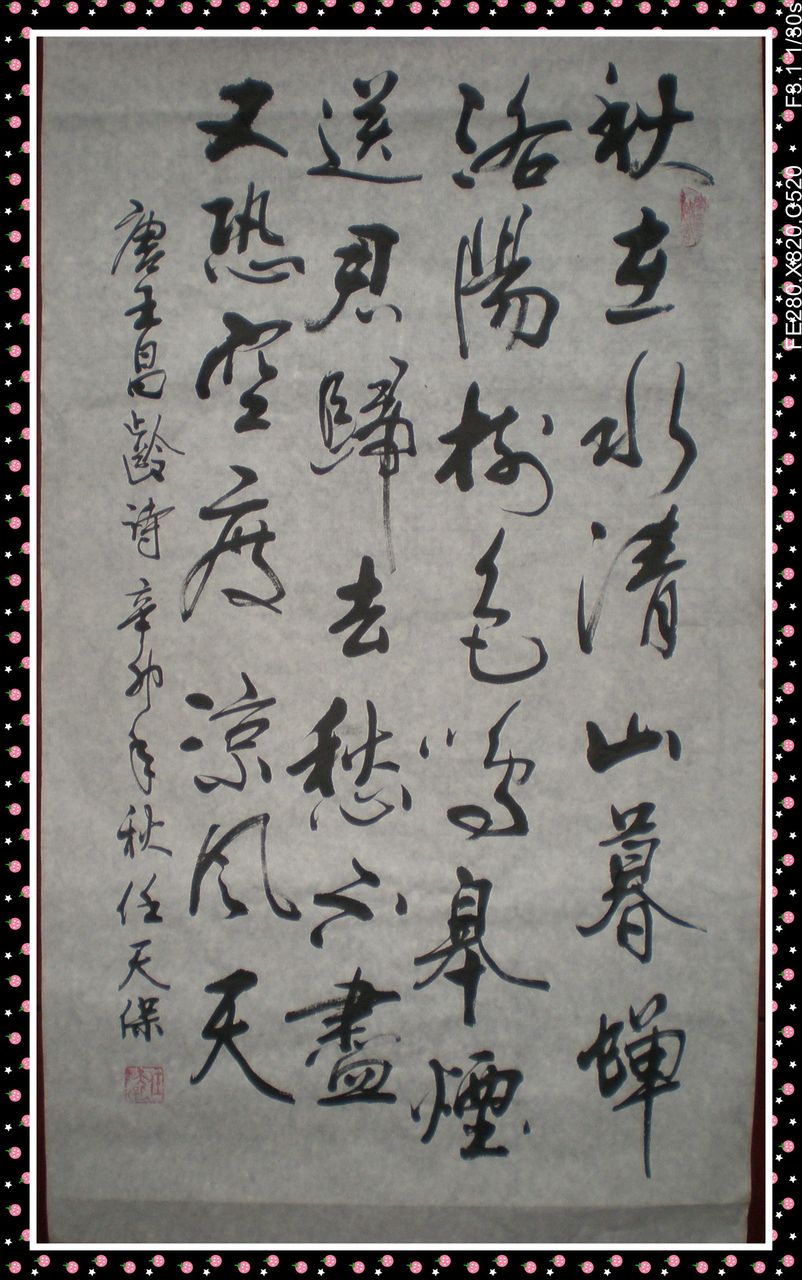 秋在水清山暮蝉
洛陽树色鸣皋煙
送君歸去愁不盡
又恐空度凉风天
唐王昌齡诗 辛卯年秋任天保
FE280,X820,C520 F8.1 1/80s